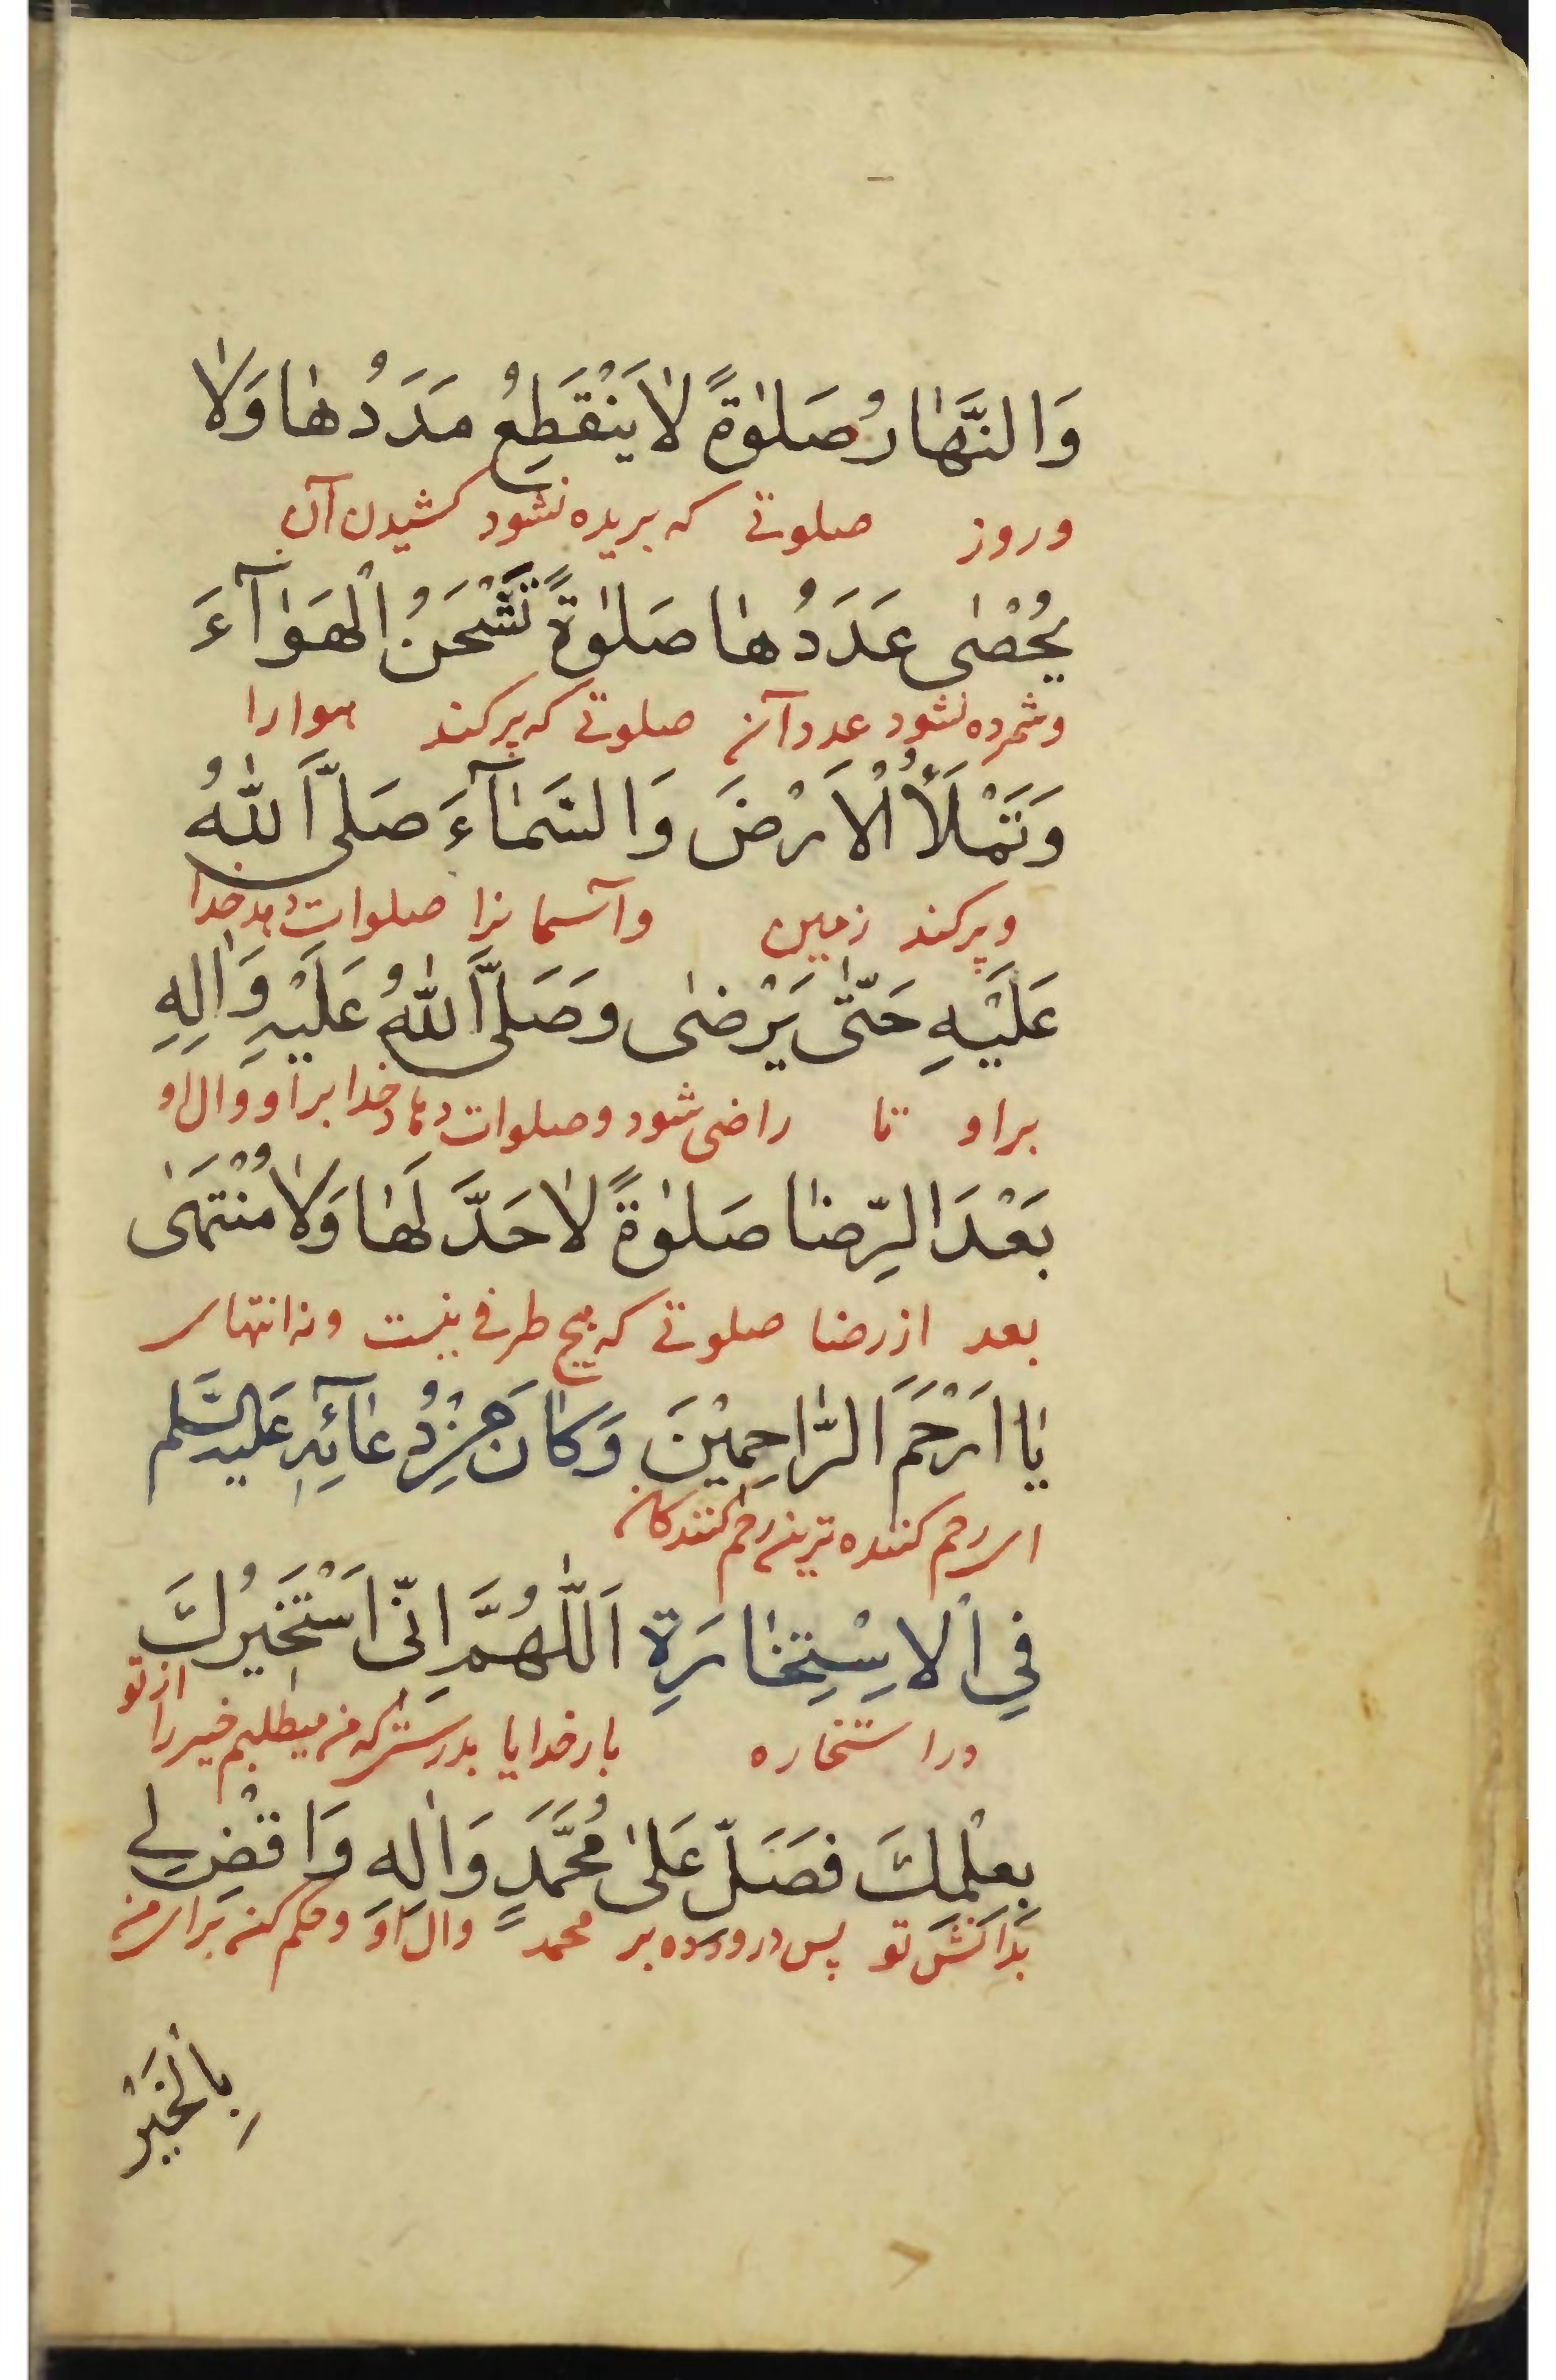 وَالنَّهَارُ صَلٰوةً لَا يَنْقَطِعُ مَدَدُهَا وَلَا
وروز صلوتی که بریده نشود کشیدن آن
يُحْصٰى عَدَدُهَا صَلٰوةً تَشْحَنُ الْهَوَآءَ
وشمرده نشود عدد آن صلوتی که پر کند هوا را
وَتَمْلَأُ الْاَرْضَ وَالسَّمَآءَ صَلَّى اللّٰهُ
وپر کند زمین وآسمانرا صلوات دهد خدا
عَلَيْهِ حَتّٰى يَرْضٰى وَصَلَّى اللّٰهُ عَلَيْهِ وَاٰلِهِ
براو تا راضی شود وصلوات دهاد خدا براو وال او
بَعْدَ الرِّضَا صَلٰوةً لَا حَدَّ لَهَا وَلَا مُنْتَهٰى
بعد از رضا صلوتی که هیچ طرفی نیست ونه انتهای
يَا اَرْحَمَ الرَّاحِمِيْنَ وَكَانَ مِنْ دُعَآئِهِ عَلَيْهِ السَّلَم
ای رحم کننده ترین رحم کنندکان
فِي الْاِسْتِخَارَةِ اَللّٰهُمَّ اِنِّى اَسْتَخِيْرُكَ
در استخاره بار خدایا بدرستی که من میطلبم خیر را از تو
بِعِلْمِكَ فَصَلِّ عَلٰى مُحَمَّدٍ وَاٰلِهِ وَاقْضِ لِي
بدانش تو پس درود ده بر محمد وال او وحکم کن برای من
بِالْخَيْرِ